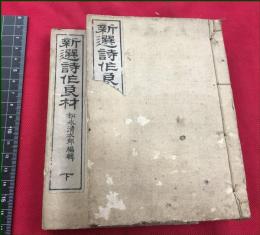 新選詩作良
新選詩作良材
清太郎編輯
下